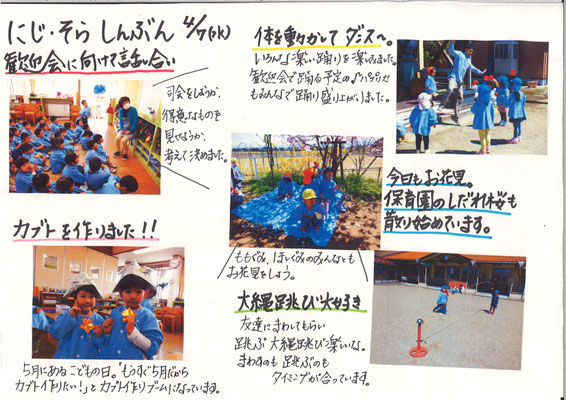 にじ・そら しんぶん 4/7(火)
歓迎会に向けて話し合い
司会をしようか、
得意なものを
見せようか、
考えて決めました。
カブトを作りました!!
5月にあるこどもの日。"もうすぐ5月だから
カブト作りたい!"とカブト作りブームになっています。
体を動かして ダンス〜。
いろんな楽しい踊りを楽しみました。
歓迎会で踊る予定の
もみんなで踊り盛り上がりました。
今日もお花見。
保育園のしだれ桜も
散り始めています。
ももぐみ、ほしぐみのみんなとも
お花見をしよう。
大縄跳び大好き
友達にまわしてもらい
跳ぶ大縄跳び楽しいな。
まわすのも跳ぶのも
タイミングが合っています。